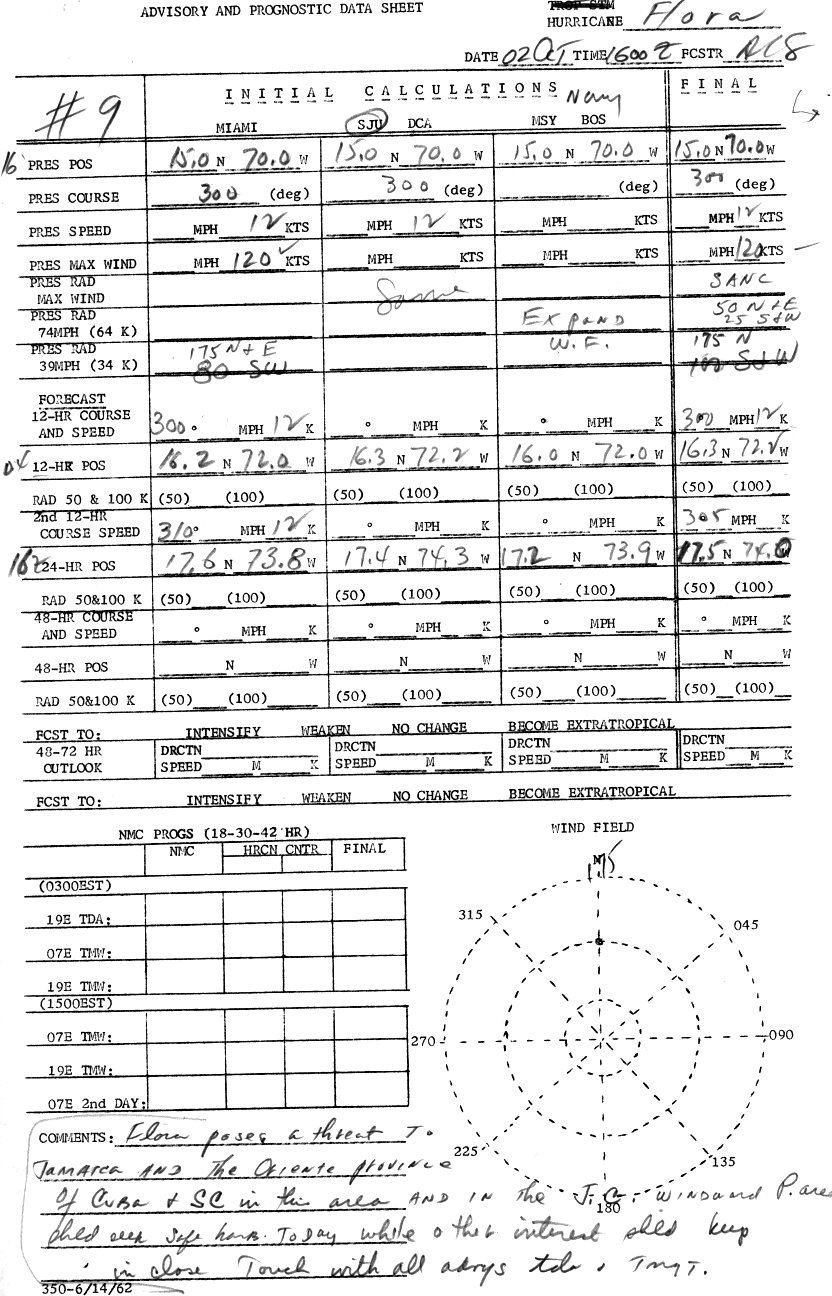 ADVISORY AND PROGNOSTIC DATA SHEET
TROP STM
HURRICANE Flora
DATE 02 Oct TIME 1600 Z FCSTR
#9
INITIAL CALCULATIONS Navy FINAL
MIAMI SJU DCA MSY BOS
16 PRES POS 15.0 N 70.0 W 15.0 N 70.0 W 15.0 N 70.0 W 15.0 N 70.0 W
PRES COURSE 300 (deg) 300 (deg) (deg) 300 (deg)
PRES SPEED MPH 12 KTS MPH 12 KTS MPH KTS MPH 12 KTS
PRES MAX WIND MPH 120 KTS MPH KTS MPH KTS MPH 120 KTS
PRES RAD
MAX WIND Same SANC
PRES RAD
74MPH (64 K) Expand 50 N+E
25 S+W
PRES RAD
39MPH (34 K) 175 N+E W.F. 175 N
80 SW 100 S+W
FORECAST
12-HR COURSE
AND SPEED 300 ° MPH 12 K ° MPH K ° MPH K 300 MPH 12 K
04 12-HR POS 16.2 N 72.0 W 16.3 N 72.2 W 16.0 N 72.0 W 16.3 N 72.2 W
RAD 50 & 100 K (50) (100) (50) (100) (50) (100) (50) (100)
2nd 12-HR
COURSE SPEED 310 ° MPH 12 K ° MPH K ° MPH K 305 MPH K
16z 24-HR POS 17.6 N 73.8 W 17.4 N 74.3 W 17.2 N 73.9 W 17.5 N 74.0 W
RAD 50&100 K (50) (100) (50) (100) (50) (100) (50) (100)
48-HR COURSE
AND SPEED ° MPH K ° MPH K ° MPH K ° MPH K
48-HR POS N W N W N W N W
RAD 50&100 K (50) (100) (50) (100) (50) (100) (50) (100)
FCST TO: INTENSIFY WEAKEN NO CHANGE BECOME EXTRATROPICAL
48-72 HR DRCTN DRCTN DRCTN DRCTN
OUTLOOK SPEED M K SPEED M K SPEED M K SPEED M K
FCST TO: INTENSIFY WEAKEN NO CHANGE BECOME EXTRATROPICAL
NMC PROGS (18-30-42 HR)
NMC HRCN CNTR FINAL
(0300EST)
19E TDA:
07E TMW:
19E TMW:
(1500EST)
07E TMW:
19E TMW:
07E 2nd DAY:
WIND FIELD
N
175
315 045
270 090
225 135
180
COMMENTS: Flora poses a threat To
Jamaica AND The Oriente province
of Cuba & SC in this area AND IN the windward P. area
shld seek safe harb. Today while other interest shld keep
in close Touch with all advys tda & Tngt.
350-6/14/62